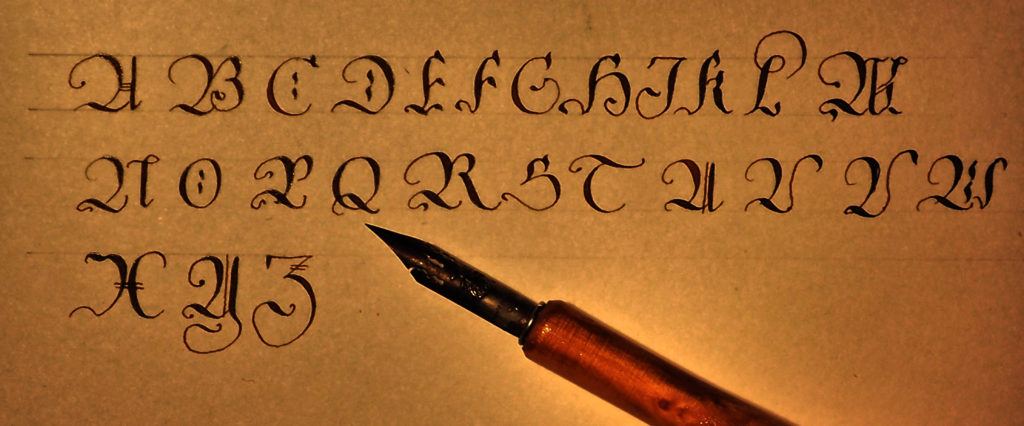 A B C D E F G H I K L M
N O P Q R S T U V V W
X Y Z